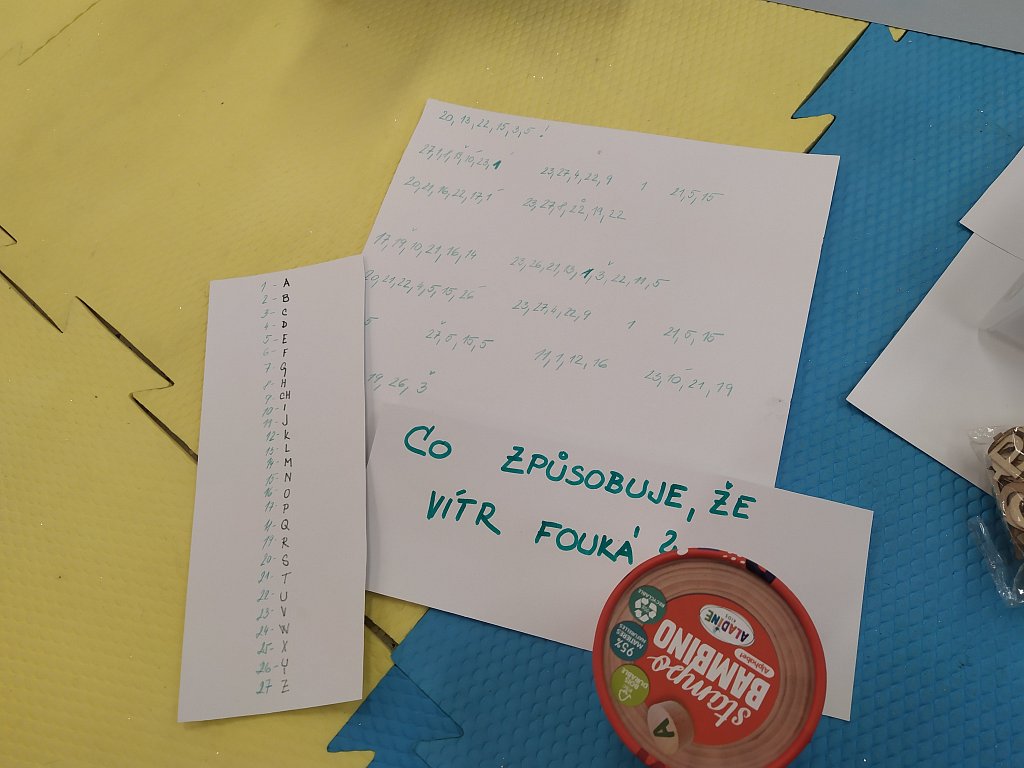 20, 13, 22, 15, 3, 5 !
23, 27, 4, 22, 9 1 21, 5, 15
20, 21, 16, 22, 17, 1 23, 27, 8, 22, 19, 22
17, 19, 10, 21, 16, 14 23, 26, 21, 13, 1, 3, 22, 11, 5
20, 21, 22, 4, 5, 15, 26 23, 27, 4, 22, 9 1 21, 5, 15
5 27, 5, 15, 5 11, 1, 12, 16 23, 10, 21, 19
19, 26, 3
1 - A
2 - B
3 - C
4 - D
5 - E
6 - F
7 - G
8 - H
9 - CH
10 - I
11 - J
12 - K
13 - L
14 - M
15 - N
16 - O
17 - P
18 - Q
19 - R
20 - S
21 - T
22 - U
23 - V
24 - W
25 - X
26 - Y
27 - Z
CO ZPŮSOBUJE, ŽE
VÍTR FOUKÁ ?
ALADINE
Alphabet
stampo
BAMBINO
RECYCLABLE
95%
MATIÈRES
NATURELLES
A